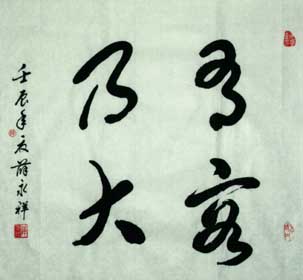 有容
乃大
壬辰年夏薛永祥